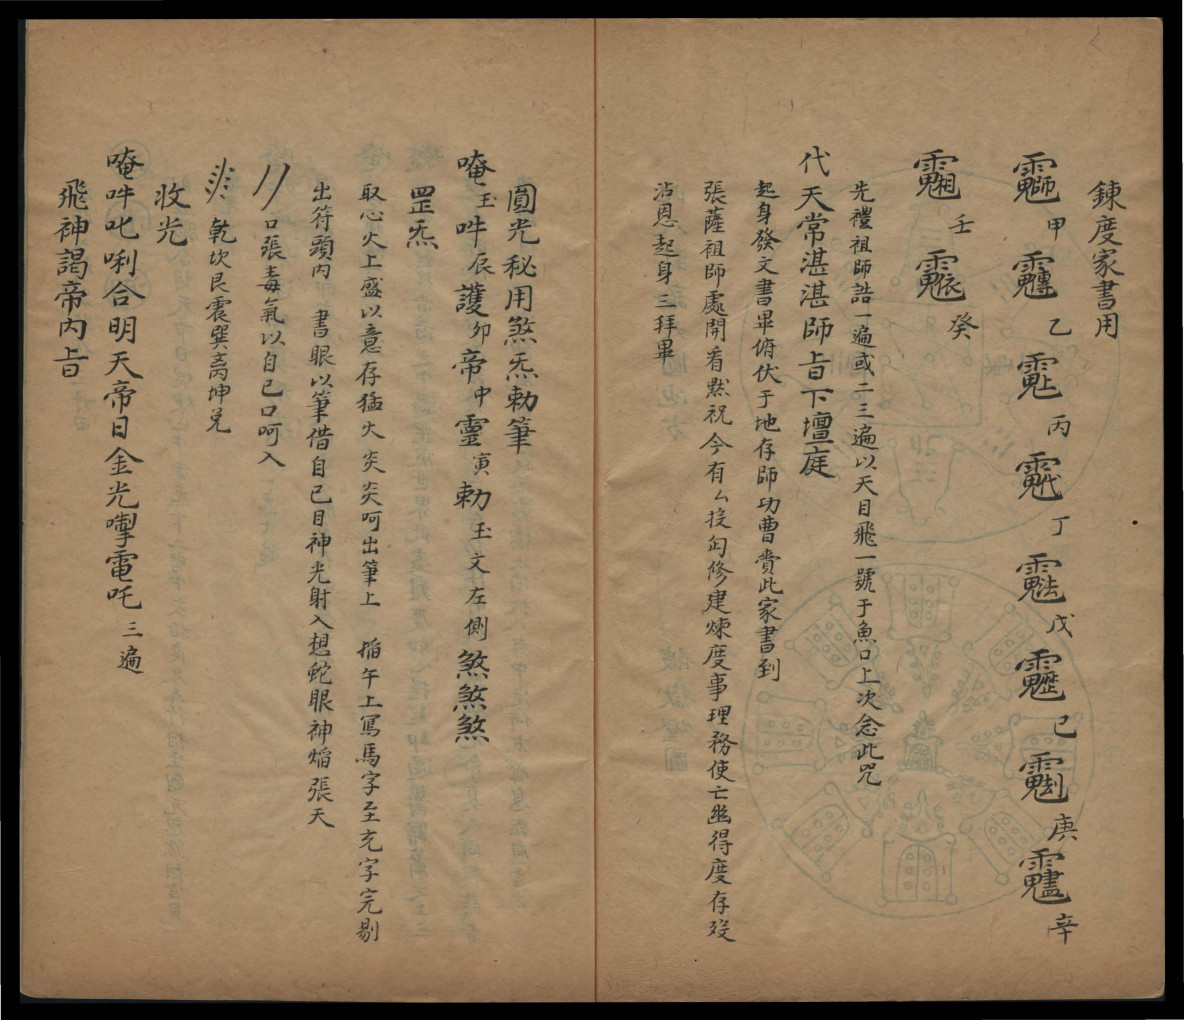 鍊度家書用
甲 乙 丙 丁 戊 己 庚 辛
壬 癸
先禮祖師誥一遍或二三遍以天目飛一號于魚口上次念此咒
代天常湛湛師㫖下壇庭
起身發文書畢俯伏于地存師功曹賫此家書到
張薩祖師處開看黙祝今有厶投匃修建煉度事理務使亡𠅤得度存殁
沾恩起身三拜畢
圓光秘用煞炁勅筆
唵玉吽辰護卯帝中靈寅勅玉文左側煞煞煞
罡炁
取心火上盛以意存猛火炎炎呵出筆上 掐午上寫馬字至充字完剔
出符頭內 書眼以筆借自己目神光射入想蛇眼神焰張天
口張毒氣以自己口呵入
乾坎艮震巽离坤兌
收光
唵吽叱唎合明天帝日金光㨃電吒三遍
飛神謁帝內㫖